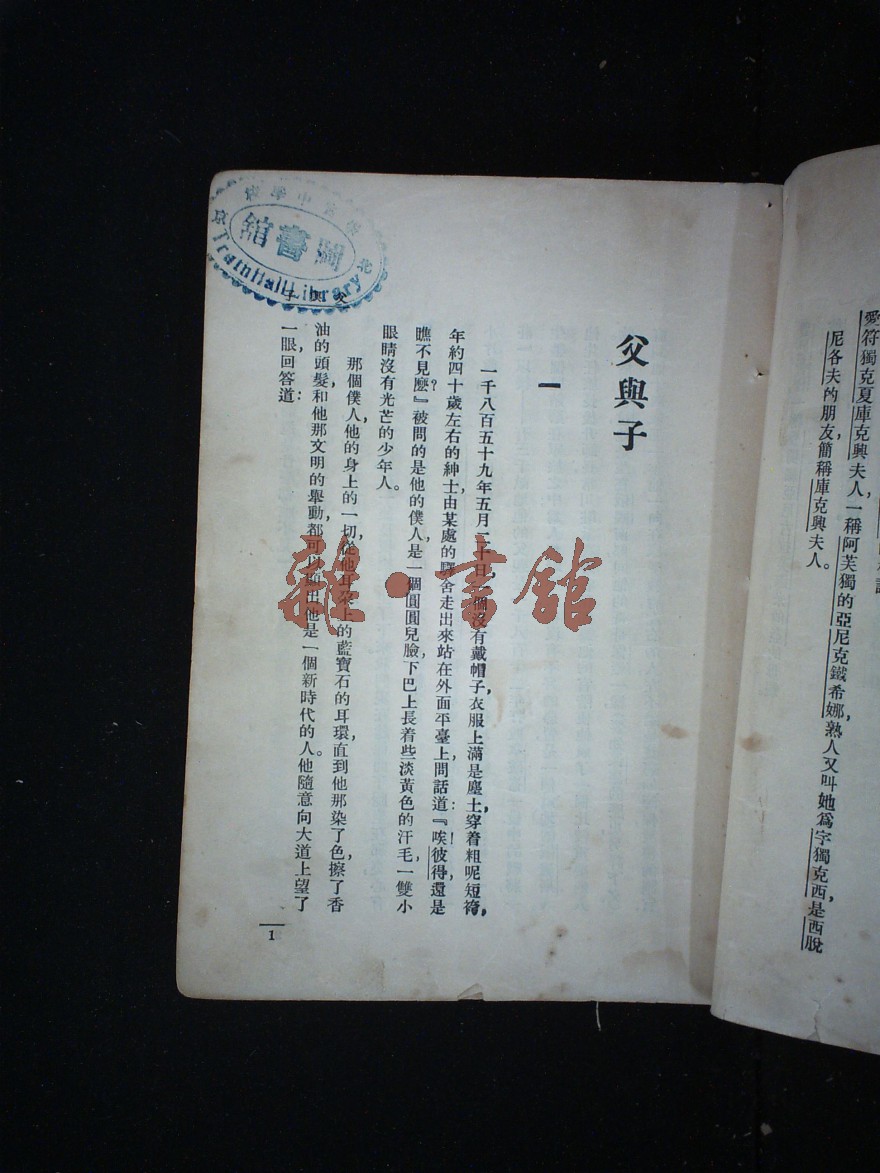 愛符獨克夏庫克興夫人，一稱阿芙獨的亞尼克鐵希娜，熟人又叫她爲字獨克西，是西脫
尼各夫的朋友簡稱庫克興夫人。
父與子
一
一千八百五十九年五月二十日，一個沒有戴帽子，衣服上滿是塵土，穿着粗呢短袴，
年約四十歲左右的紳士，由某處的驛舍走出來，站在外面平臺上問話道：『唉！彼得，還是
瞧不見麽？』被問的是他的僕人，是一個圓圓兒臉，下巴上長着些淡黃色的汗毛，一雙小
眼睛沒有光芒的少年人。
那個僕人，他的身上的一切，從他耳朶上的藍寶石的耳環，直到他那染了色擦了香
油的頭髮，和他那文明的舉動，都可以顯出他是一個新時代的人。他隨意向大道上望了
一眼，回答道：
1
圖書館
Library
雜·書館